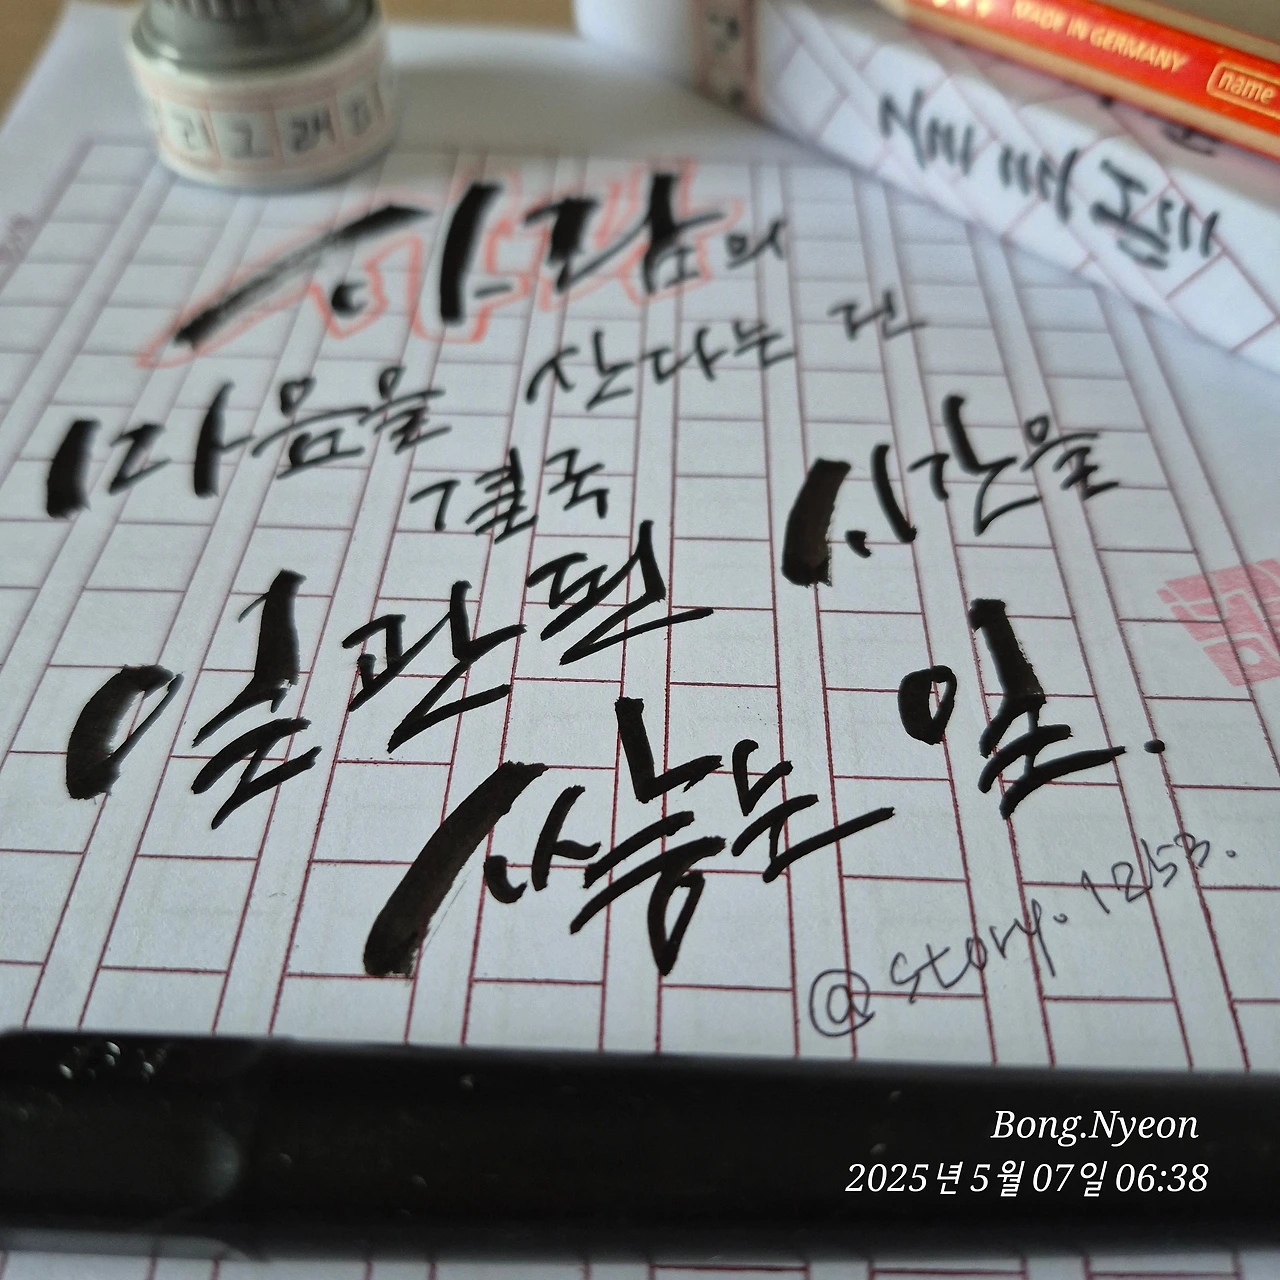 MADE IN GERMANY
name
리그래피
사람의
마음을 산다는 건
결국 시간을
일관편
쌓는 일.
@story.1253.
Bong.Nyeon
2025년 5월 07일 06:38